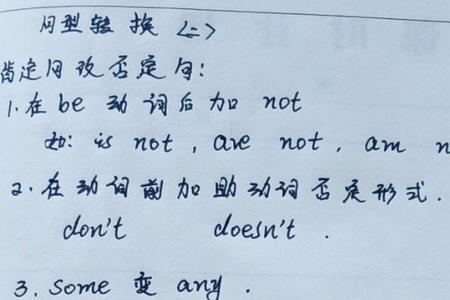 句型转换 <二>
肯定句改否定句:
1. 在 be 动词后加 not
如: is not , are not , am n
2. 在动词前加助动词否定形式.
don't doesn't .
3. some 变 any .